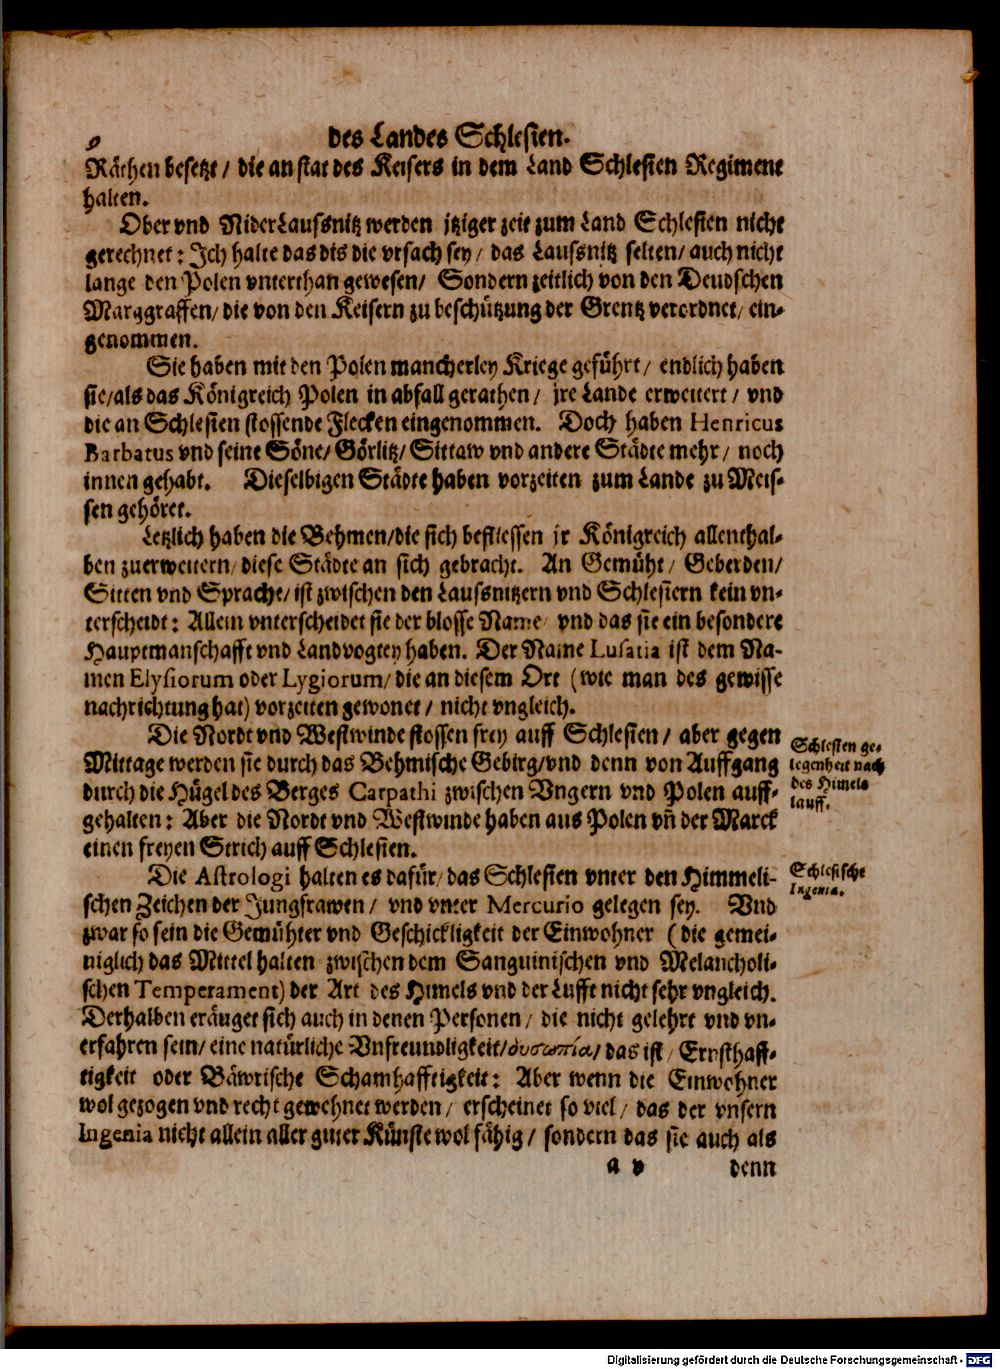 des Landes Schlesien.
Räthen besetzt / die an stat des Keisers in dem Land Schlesien Regiment
halten.
Ober vnd NiderLaussnitz werden jtziger zeit zum Land Schlesien nicht
gerechnet: Ich halte das dis die vrsach sey / das Laussnitz selten / auch nicht
lange den Polen vnterthan gewesen / Sondern zeitlich von den Deudschen
Marggraffen / die von den Keisern zu beschützung der Grentz verordnet / ein-
genommen.
Sie haben mit den Polen mancherley Kriege geführt / endlich haben
sie / als das Königreich Polen in abfall gerathen / jre Lande erweitert / vnd
die an Schlesien stossende Flecken eingenommen. Doch haben Henricus
Barbatus vnd seine Söne / Görlitz / Sittaw vnd andere Städte mehr / noch
innen gehabt. Dieselbigen Städte haben vorzeiten zum Lande zu Meis-
sen gehöret.
Letzlich haben die Behmen / die sich beflissen jr Königreich allenthal-
ben zuerweitern / diese Städte an sich gebracht. An Gemüht / Geberden /
Sitten vnd Sprache / ist zwischen den Laussnitzern vnd Schlesiern kein vn-
terscheidt: Allein vnterscheidet sie der blosse Name / vnd das sie ein besondere
Hauptmanschafft vnd Landvogtey haben. Der Name Lusatia ist dem Na-
men Elysiorum oder Lygiorum / die an diesem Ort (wie man des gewisse
nachrichtung hat) vorzeiten gewonet / nicht vngleich.
Die Nordt vnd Westwinde stossen frey auff Schlesien / aber gegen
Mittage werden sie durch das Behmische Gebirg / vnd denn von Auffgang
durch die Hügel des Berges Carpathi zwischen Vngern vnd Polen auff-
gehalten: Aber die Nordt vnd Westwinde haben aus Polen vn̄ der Marck
einen freyen Strich auff Schlesien.
Schlesien ge-
legenheit nach
des Himels
lauff.
Die Astrologi halten es dafür / das Schlesien vnter den Himmeli-
schen Zeichen der Jungfrawen / vnd vnter Mercurio gelegen sey. Vnd
zwar so sein die Gemühter vnd Geschickligkeit der Einwohner (die gemei-
niglich das Mittel halten zwischen dem Sanguinischen vnd Melancholi-
schen Temperament) der Art des Himels vnd der Lufft nicht sehr vngleich.
Derhalben eräuget sich auch in denen Personen / die nicht gelehrt vnd vn-
erfahren sein / eine natürliche Vnfreundligkeit / δυσωπία / das ist / Ernsthaff-
tigkeit oder Bäwrische Schamhafftigkeit: Aber wenn die Einwohner
wol gezogen vnd recht gewehnet werden / erscheinet so viel / das der vnsern
Ingenia nicht allein aller guter Künste wol fähig / sondern das sie auch als
Schlesische
Ingenia.
a v denn
Digitalisierung gefördert durch die Deutsche Forschungsgemeinschaft - DFG